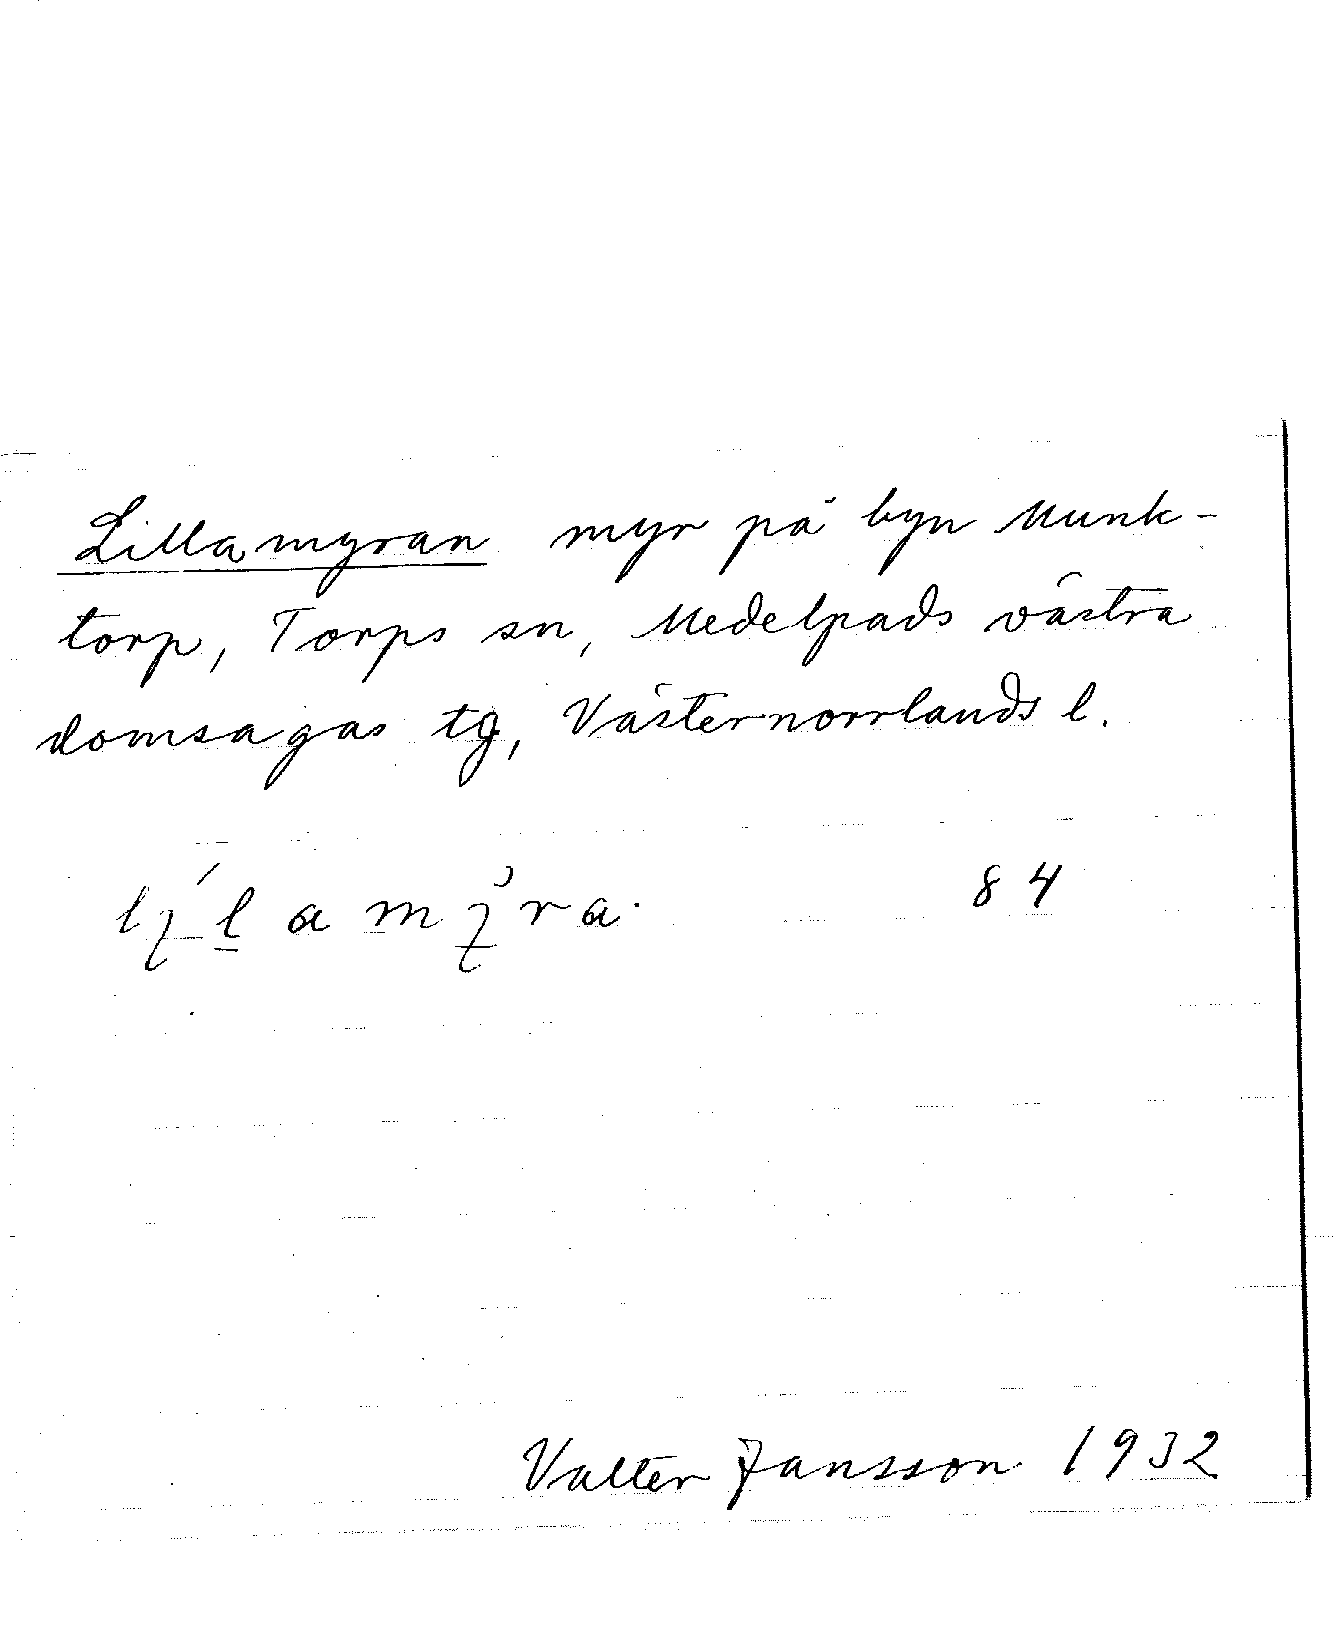 Lillamyran myr på byn Munk-
torp, Torps sn, Medelpads västra
domsagas tg, Västernorrlands l.
84
Valter Jansson 1932